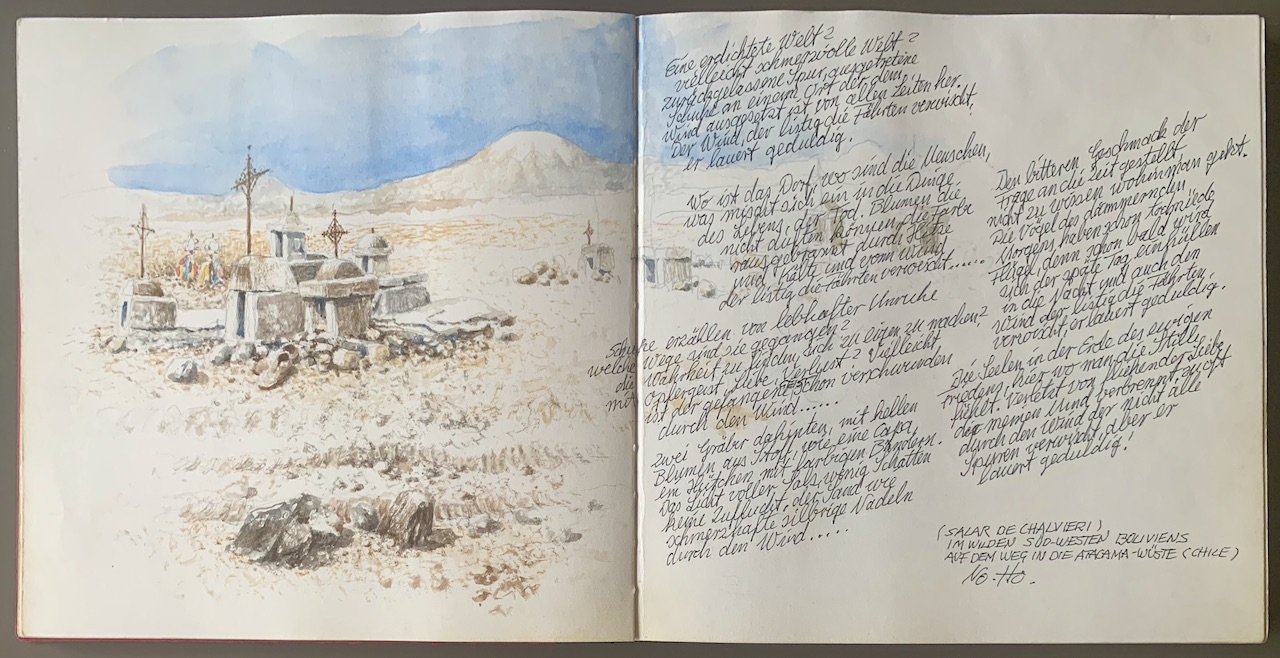 Eine erdichtete Welt?
vielleicht schmerzvolle Welt?
zurückgelassene Spur, ausgetretene
Schuhe an einem Ort der dem
Wind ausgesetzt ist von allen Seiten her.
Der Wind, der listig die Fährten verwischt,
er lauert geduldig.
Wo ist das Dorf, wo sind die Menschen,
was mischt sich ein in die Dinge
des Lebens, der Tod. Blumen die
nicht duften können, die Farbe
rausgebrannt durch Hitze
und Kälte und vom Wind
der listig die Fährten verwischt......
Schuhe erzählen von lebhafter Unruhe
welche Wege sind sie gegangen?
die Wahrheit zu finden, sich zu eigen zu machen?
mit Opfergeist, Liebe, Verlust? Vielleicht
ist der gefangene schon verschwunden
durch den Wind......
Zwei Gräber dahinten, mit hellen
Blumen aus Stoff, wie eine Capa,
ein Hütchen mit farbigen Bändern.
Das Licht voller Salz, wenig Schatten
keine Zuflucht, der Sand wie
schmerzhafte silbrige Nadeln
durch den Wind.....
Den bitteren Geschmack der
Frage an die Zeit gestellt
nicht zu wissen wohin man gehet.
Die Vögel des dämmernden
Morgens haben schon todmüde
Flügel, denn schon bald wird
sich der späte Tag einhüllen
in die Nacht und auch den
Wind der listig die Fährten,
verwischt, er lauert geduldig.
Die Seelen in der Erde des ewigen
Friedens, hier wo man die Stille
siehet. Verletzt von fliehender Liebe
der meinen Mund verbrennt, sucht
durch den Wind der nicht alle
Spuren verwischt, aber er
lauert geduldig!
(SALAR DE CHALVIERI)
IM WILDEN SÜD-WESTEN BOLIVIENS
AUF DEM WEG IN DIE ATACAMA-WÜSTE (CHILE)
No-Ho.